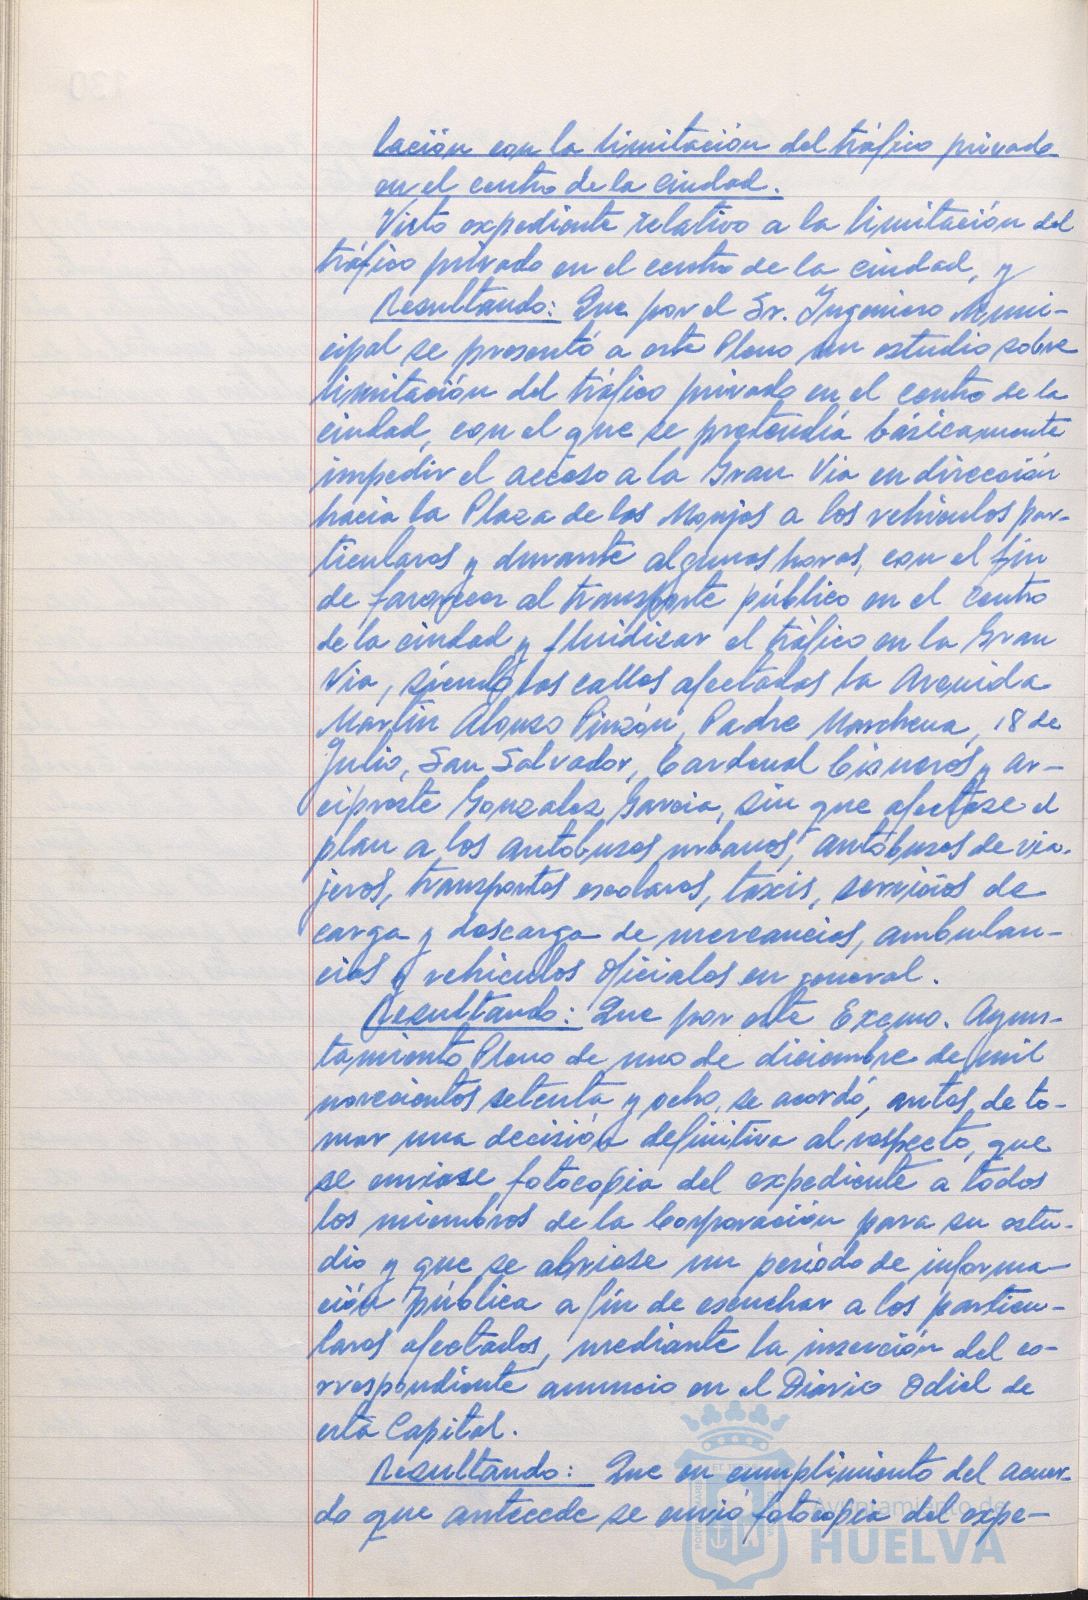 lación con la limitación del tráfico privado
en el centro de la ciudad.
Visto expediente relativo a la limitación del
tráfico privado en el centro de la ciudad, y
Resultando: Que por el Sr. Ingeniero Muni-
cipal se presentó a este Pleno un estudio sobre
limitación del tráfico privado en el centro de la
ciudad, con el que se pretendía básicamente
impedir el acceso a la Gran Via en dirección
hacia la Plaza de las Monjas a los vehículos par-
ticulares y durante algunas horas, con el fin
de favorecer al transporte público en el centro
de la ciudad y fluidizar el tráfico en la Gran
Via, siendo las calles afectadas la Avenida
Martín Alonso Pinzón, Padre Marchena, 18 de
Julio, San Salvador, Cardenal Cisneros y Ar-
cipreste Gonzalez Garcia, sin que afectase el
plan a los autobuses urbanos, autobuses de via-
jeros, transportes escolares, taxis, servicios de
carga y descarga de mercancias, ambulan-
cias y vehiculos oficiales en general.
Resultando: Que por este Excmo. Ayun-
tamiento Pleno de uno de diciembre de mil
novecientos setenta y ocho, se acordó, antes de to-
mar una decisión definitiva al respecto, que
se enviase fotocopia del expediente a todos
los miembros de la Corporación para su estu-
dio y que se abriese un periodo de informa-
ción pública a fin de escuchar a los particu-
lares afectados, mediante la inserción del co-
rrespondiente anuncio en el Diario Odiel de
esta Capital.
Resultando: Que en cumplimiento del acuer-
do que antecede se envió fotocopia del expe-
Ayuntamiento de
HUELVA